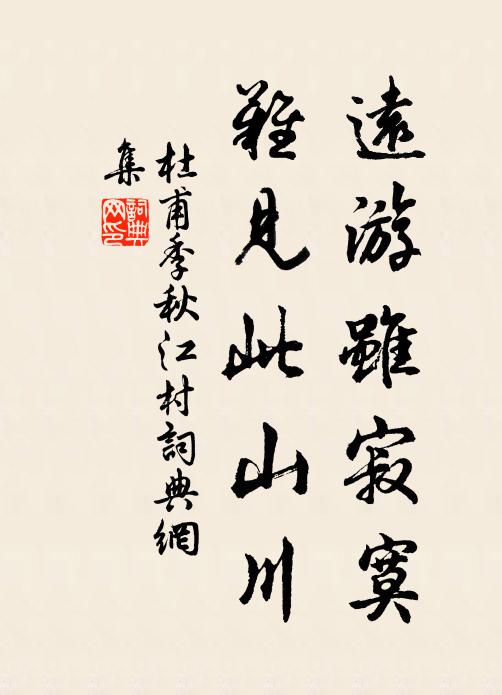 遠游雖寂寞
難見此山川
杜甫季秋江村詞典網
集
詞典
网印